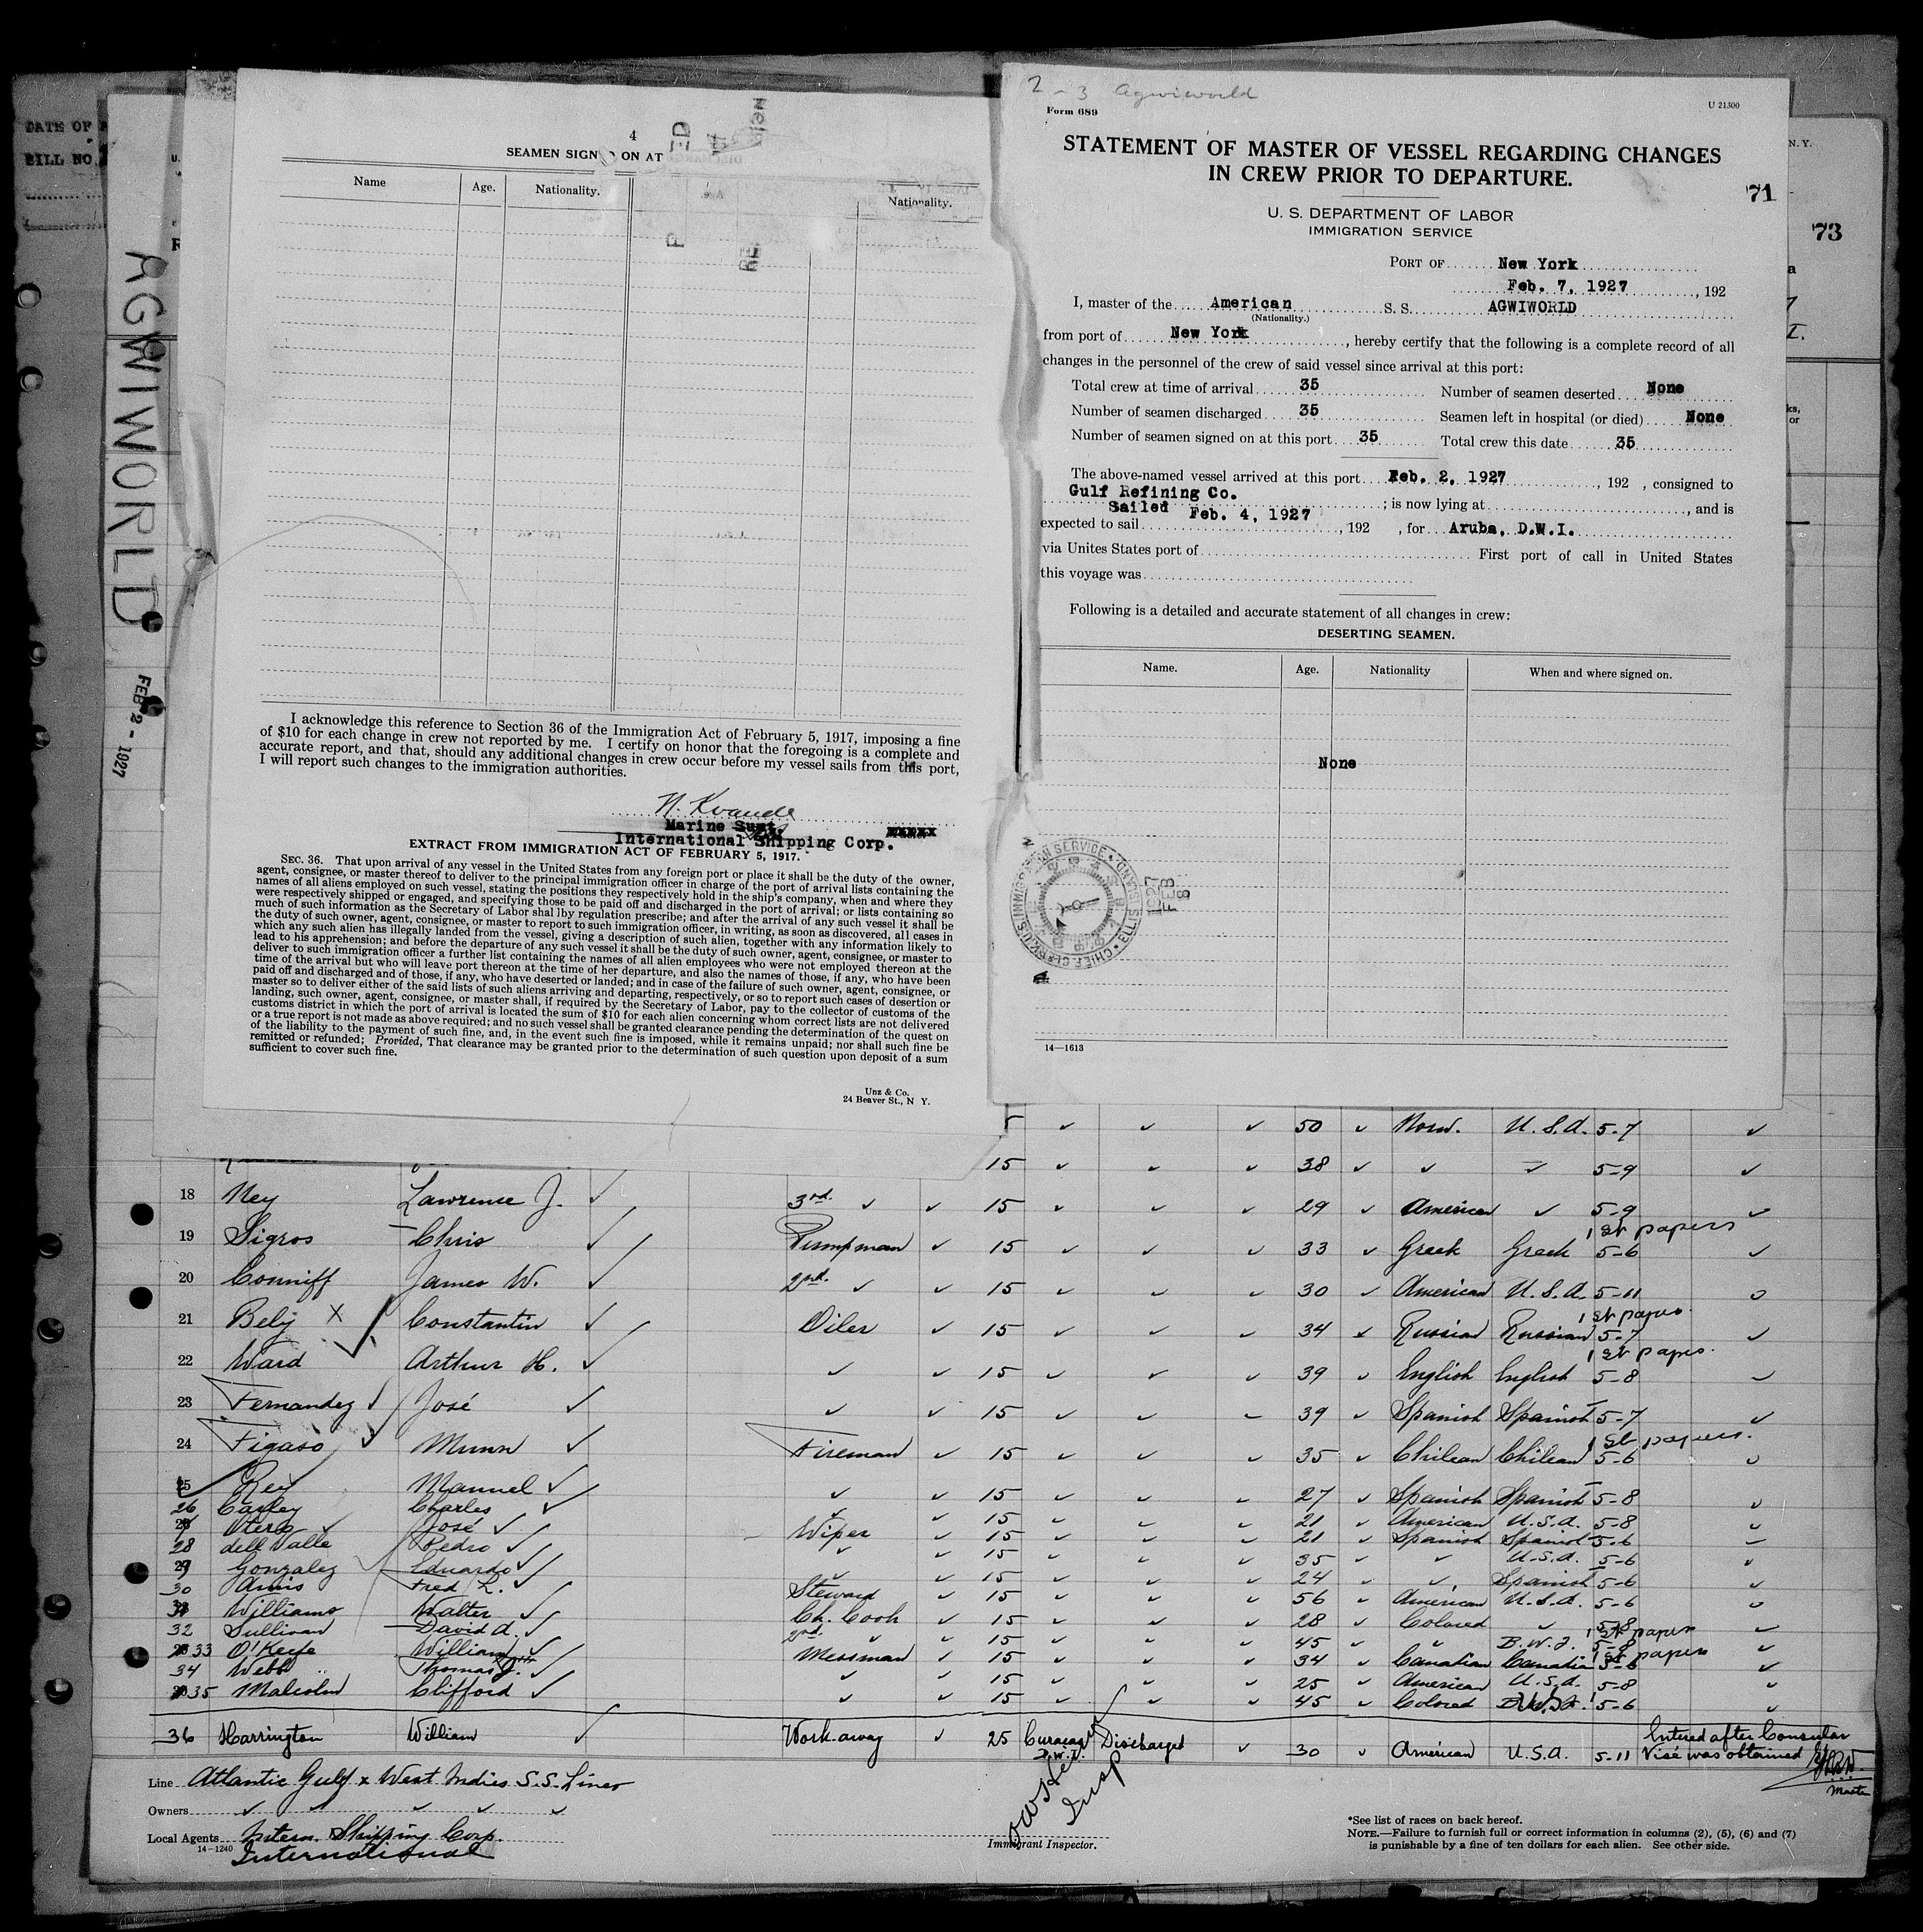 DATE OF
BILL NO.
AGWIWORLD
FEB 2 - 1927
4
SEAMEN SIGN ON AT
Name Age. Nationality. Nationality.
I acknowledge this reference to Section 36 of the Immigration Act of February 5, 1917, imposing a fine
of $10 for each change in crew not reported by me. I certify on honor that the foregoing is a complete and
accurate report, and that, should any additional changes in crew occur before my vessel sails from this port,
I will report such changes to the immigration authorities.
N. Kvande
Marine Supt.
International Shipping Corp.
EXTRACT FROM IMMIGRATION ACT OF FEBRUARY 5, 1917.
SEC. 36. That upon arrival of any vessel in the United States from any foreign port or place it shall be the duty of the owner,
agent, consignee, or master thereof to deliver to the principal immigration officer in charge of the port of arrival lists containing the
names of all aliens employed on such vessel, stating the positions they respectively hold in the ship's company, when and where they
were respectively shipped or engaged, and specifying those to be paid off and discharged in the port of arrival; or lists containing so
much of such information as the Secretary of Labor shal ]by regulation prescribe; and after the arrival of any such vessel it shall be
the duty of such owner, agent, consignee, or master to report to such immigration officer, in writing, as soon as discovered, all cases in
which any such alien has illegally landed from the vessel, giving a description of such alien, together with any information likely to
lead to his apprehension; and before the departure of any such vessel it shall be the duty of such owner, agent, consignee, or master to
deliver to such immigration officer a further list containing the names of all alien employees who were not employed thereon at the
time of the arrival but who will leave port thereon at the time of her departure, and also the names of those, if any, who have been
paid off and discharged and of those, if any, who have deserted or landed; and in case of the failure of such owner, agent, consignee, or
master so to deliver either of the said lists of such aliens arriving and departing, respectively, or so to report such cases of desertion or
landing, such owner, agent, consignee, or master shall, if required by the Secretary of Labor, pay to the collector of customs of the
customs district in which the port of arrival is located the sum of $10 for each alien concerning whom correct lists are not delivered
or a true report is not made as above required; and no such vessel shall be granted clearance pending the determination of the quest on
of the liability to the payment of such fine, and, in the event such fine is imposed, while it remains unpaid; nor shall such fine be
remitted or refunded; Provided, That clearance may be granted prior to the determination of such question upon deposit of a sum
sufficient to cover such fine.
Unz & Co.
24 Beaver St., N Y.
2 - 3 Agwiworld
Form 689
U 21300
STATEMENT OF MASTER OF VESSEL REGARDING CHANGES
IN CREW PRIOR TO DEPARTURE.
71
U. S. DEPARTMENT OF LABOR
IMMIGRATION SERVICE
PORT OF New York
Feb. 7, 1927, 192
I, master of the American S. S. AGWIWORLD
(Nationality.)
from port of New York, hereby certify that the following is a complete record of all
changes in the personnel of the crew of said vessel since arrival at this port:
Total crew at time of arrival 35 Number of seamen deserted None
Number of seamen discharged 35 Seamen left in hospital (or died) None
Number of seamen signed on at this port 35 Total crew this date 35
The above-named vessel arrived at this port Feb. 2, 1927, 192 , consigned to
Gulf Refining Co. ; is now lying at , and is
Sailed
expected to sail Feb. 4, 1927, 192 , for Aruba, D.W.I.
via Unites States port of First port of call in United States
this voyage was
Following is a detailed and accurate statement of all changes in crew:
DESERTING SEAMEN.
Name. Age. Nationality When and where signed on.
None
CHIEF CLERK U.S. IMMIGRATION SERVICE ELLIS ISLAND
1927 FEB 8
14—1613
N. Y.
73
50 ✓ Norw. U.S.A. 5-7
15 ✓ ✓ ✓ 38 ✓ ✓ 5-9 ✓
18 Ney Lawrence J. ✓ 3rd. ✓ ✓ 15 ✓ ✓ ✓ 29 ✓ American ✓ 5-9 ✓
19 Sigros Chris ✓ Pumpman ✓ 15 ✓ 33 ✓ Greek Greek 5-6 1st papers ✓
20 Conniff James W. ✓ 2nd. ✓ ✓ 15 ✓ ✓ ✓ 30 ✓ American U.S.A. 5-11
21 Bely X Constantin ✓ Oiler ✓ 15 ✓ ✓ ✓ 34 ✓ Russian Russian 5-7 1st papers ✓
22 Ward Arthur H. ✓ ✓ 15 ✓ ✓ ✓ 39 ✓ English English 5-8 1st papers. ✓
23 Fernandez ✓ José ✓ ✓ ✓ 15 ✓ ✓ 39 ✓ Spanish Spanish 5-7 ✓
24 Figaso ✓ Munn ✓ Fireman ✓ 15 ✓ ✓ ✓ 35 ✓ Chilean Chilean 5-6 1st papers.
25 Rey Manuel ✓ ✓ ✓ 15 ✓ ✓ ✓ 27 ✓ Spanish Spanish 5-8
26 Carley Charles ✓ ✓ 15 21 ✓ American U.S.A. 5-8
Otero ✓ José ✓ Wiper ✓ 15 21 ✓ Spanish Spanish 5-6
28 dell Valle Pedro ✓ ✓ ✓ 15 35 ✓ ✓ U.S.A. 5-6
29 Gonzalez Eduardo ✓ ✓ ✓ 15 24 ✓ ✓ Spanish 5-6
30 Amis Fred L. ✓ Steward ✓ 15 56 ✓ American U.S.A. 5-6
31 Williams Walter ✓ Ch. Cook ✓ 15 28 ✓ Colored ✓ 5-8
32 Sullivan David A. ✓ 2nd. ✓ ✓ 15 45 ✓ ✓ B.W.I. 5-8 1st papers
33 O'Keefe William ✓ Messman ✓ 15 34 ✓ Canadian Canadian 5-6 1st papers
34 Webb Thomas J. ✓ ✓ ✓ 15 25 ✓ American U.S.A. 5-8
35 Malcolm Clifford ✓ ✓ ✓ 15 45 ✓ Colored 5-6
36 Harrington William ✓ Work-away ✓ 25 Curacao D.W.I. Discharged ✓ 30 ✓ American U.S.A. 5-11 Entered after Consular
Visé was obtained
Master
Line Atlantic Gulf & West Indies S.S. Lines
Owners ✓ ✓ ✓ ✓ ✓
Local Agents Intern. Shipping Corp.
14-1240 International
Insp
Immigrant Inspector.
*See list of races on back hereof.
NOTE.—Failure to furnish full or correct information in columns (2), (5), (6) and (7)
is punishable by a fine of ten dollars for each alien. See other side.